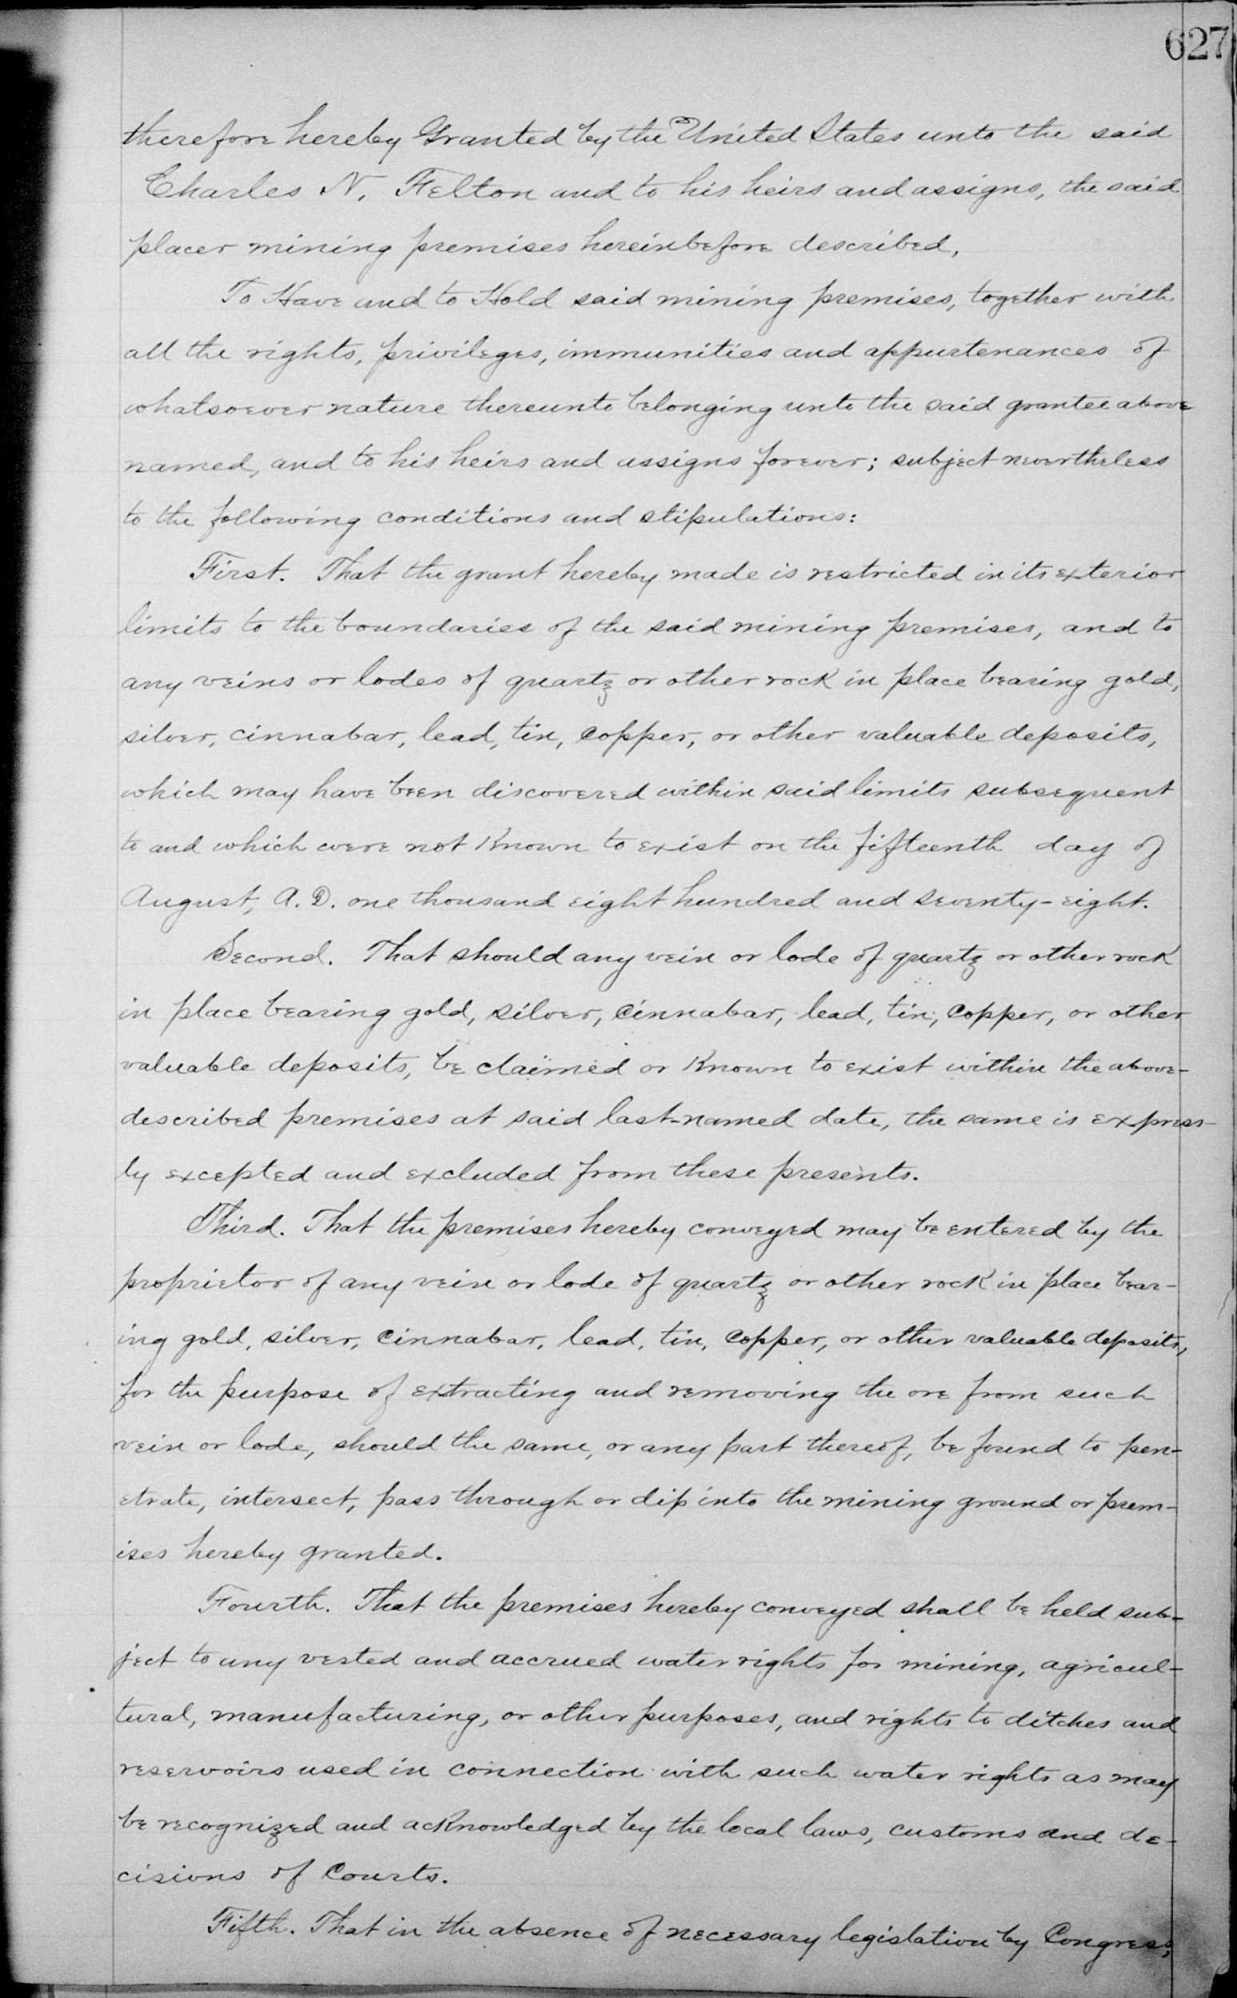 627
therefore hereby Granted by the United States unto the said
Charles N. Felton and to his heirs and assigns, the said
placer mining premises hereinbefore described,
To Have and to Hold said mining premises, together with
all the rights, privileges, immunities and appurtenances of
whatsoever nature thereunto belonging unto the said grantee above
named, and to his heirs and assigns forever; subject nevertheless
to the following conditions and stipulations:
First. That the grant hereby made is restricted in its exterior
limits to the boundaries of the said mining premises, and to
any veins or lodes of quartz or other rock in place bearing gold,
silver, cinnabar, lead, tin, copper, or other valuable deposits,
which may have been discovered within said limits subsequent
to and which were not known to exist on the fifteenth day of
August, A.D. one thousand eight hundred and seventy-eight.
Second. That should any vein or lode of quartz or other rock
in place bearing gold, silver, cinnabar, lead, tin, copper, or other
valuable deposits, be claimed or known to exist within the above-
described premises at said last-named date, the same is express-
ly excepted and excluded from these presents.
Third. That the premises hereby conveyed may be entered by the
proprietor of any vein or lode of quartz or other rock in place bear-
ing gold, silver, cinnabar, lead, tin, copper, or other valuable deposits,
for the purpose of extracting and removing the ore from such
vein or lode, should the same, or any part thereof, be found to pen-
etrate, intersect, pass through or dip into the mining ground or prem-
ises hereby granted.
Fourth. That the premises hereby conveyed shall be held sub-
ject to any vested and accrued water rights for mining, agricul-
tural, manufacturing, or other purposes, and rights to ditches and
reservoirs used in connection with such water rights as may
be recognized and acknowledged by the local laws, customs and de-
cisions of Courts.
Fifth. That in the absence of necessary legislation by Congress,